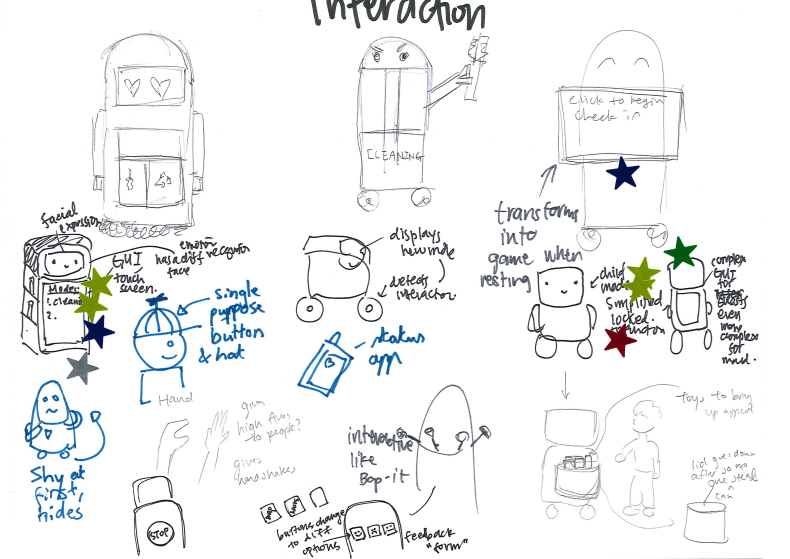 Interaction
CLEANING
click to begin
check in
transforms
into
game when
resting
facial
expression
GUI
touch
screen.
emotion
has a diff
face
Modes:
1. cleani
2.
single
purpose
button
& hat
displays
new mode
detects
interaction
status
app
child
mode
simplified
locked
function
complex
GUI
for
even
more
complex
for
maid.
Shy at
first,
hides
Hand
gives
high fives
to people?
gives
handshakes
STOP
interactive
like
Bop-it
buttons change
to diff
options
feedback
"form"
toys to bring
up appeal
lid goes down
after so no
one steal
can